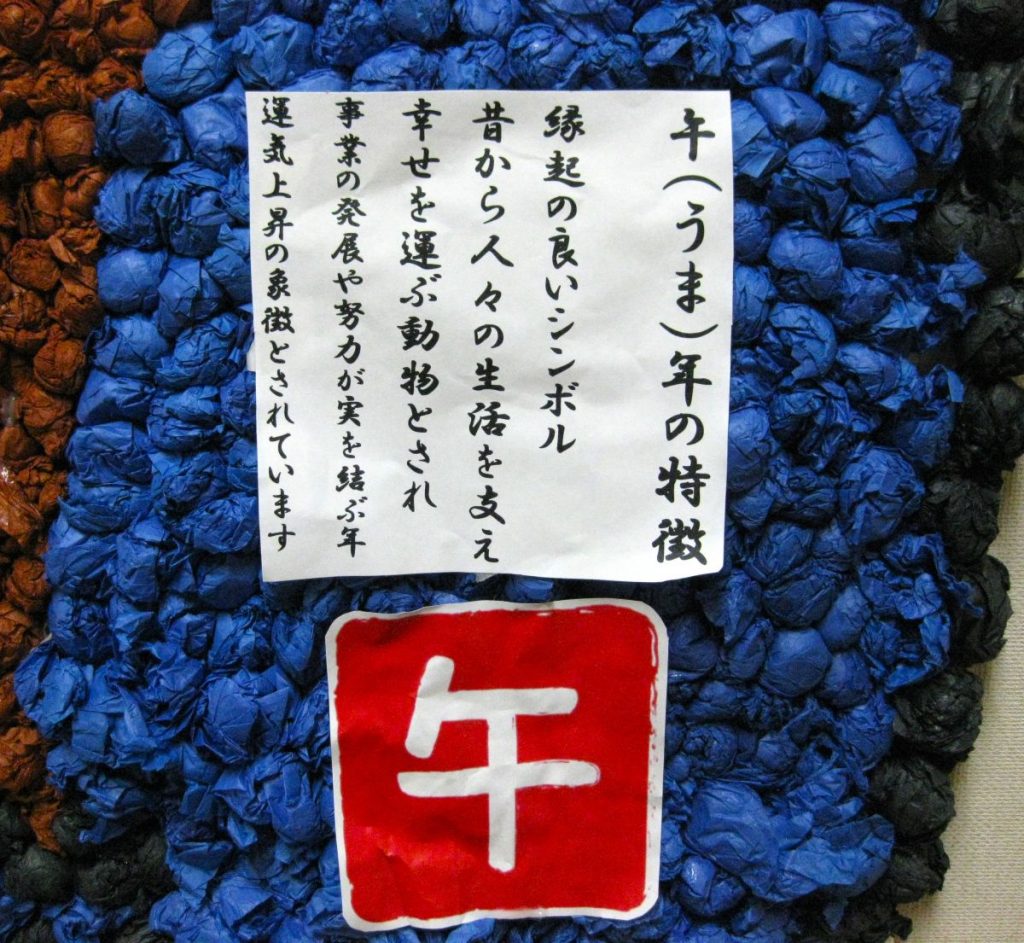 午(うま)年の特徴
縁起の良いシンボル
昔から人々の生活を支え
幸せを運ぶ動物とされ
事業の発展や努力が実を結ぶ年
運気上昇の象徴とされています
午